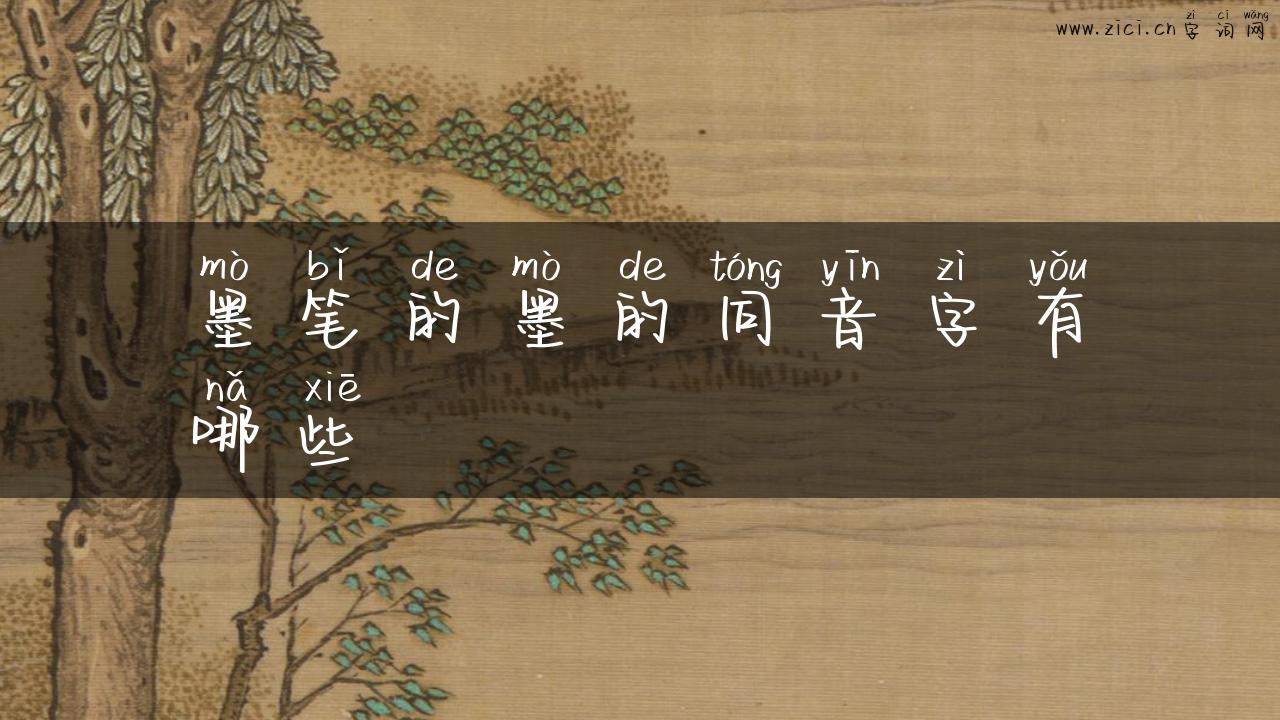 zì cí wǎng
www.zici.cn 字 词 网
mò bǐ de mò de tóng yīn zì yǒu
墨 笔 的 墨 的 同 音 字 有
nǎ xiē
哪 些